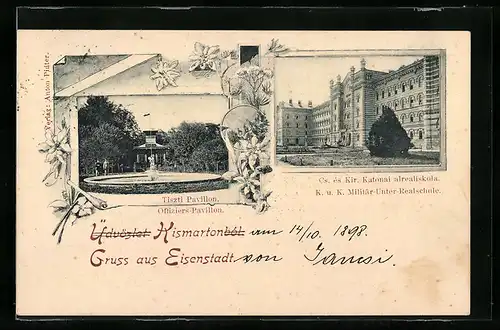 Verlag: Anton Pidter.
Tiszti Pavillon.
Offiziers-Pavillon.
Cs. és Kir. Katonai alrealiskola.
K. u. K. Militär-Unter-Realschule.
Üdvözlet Kismartonból am 14/10. 1898.
Gruss aus Eisenstadt. von Jancsi.